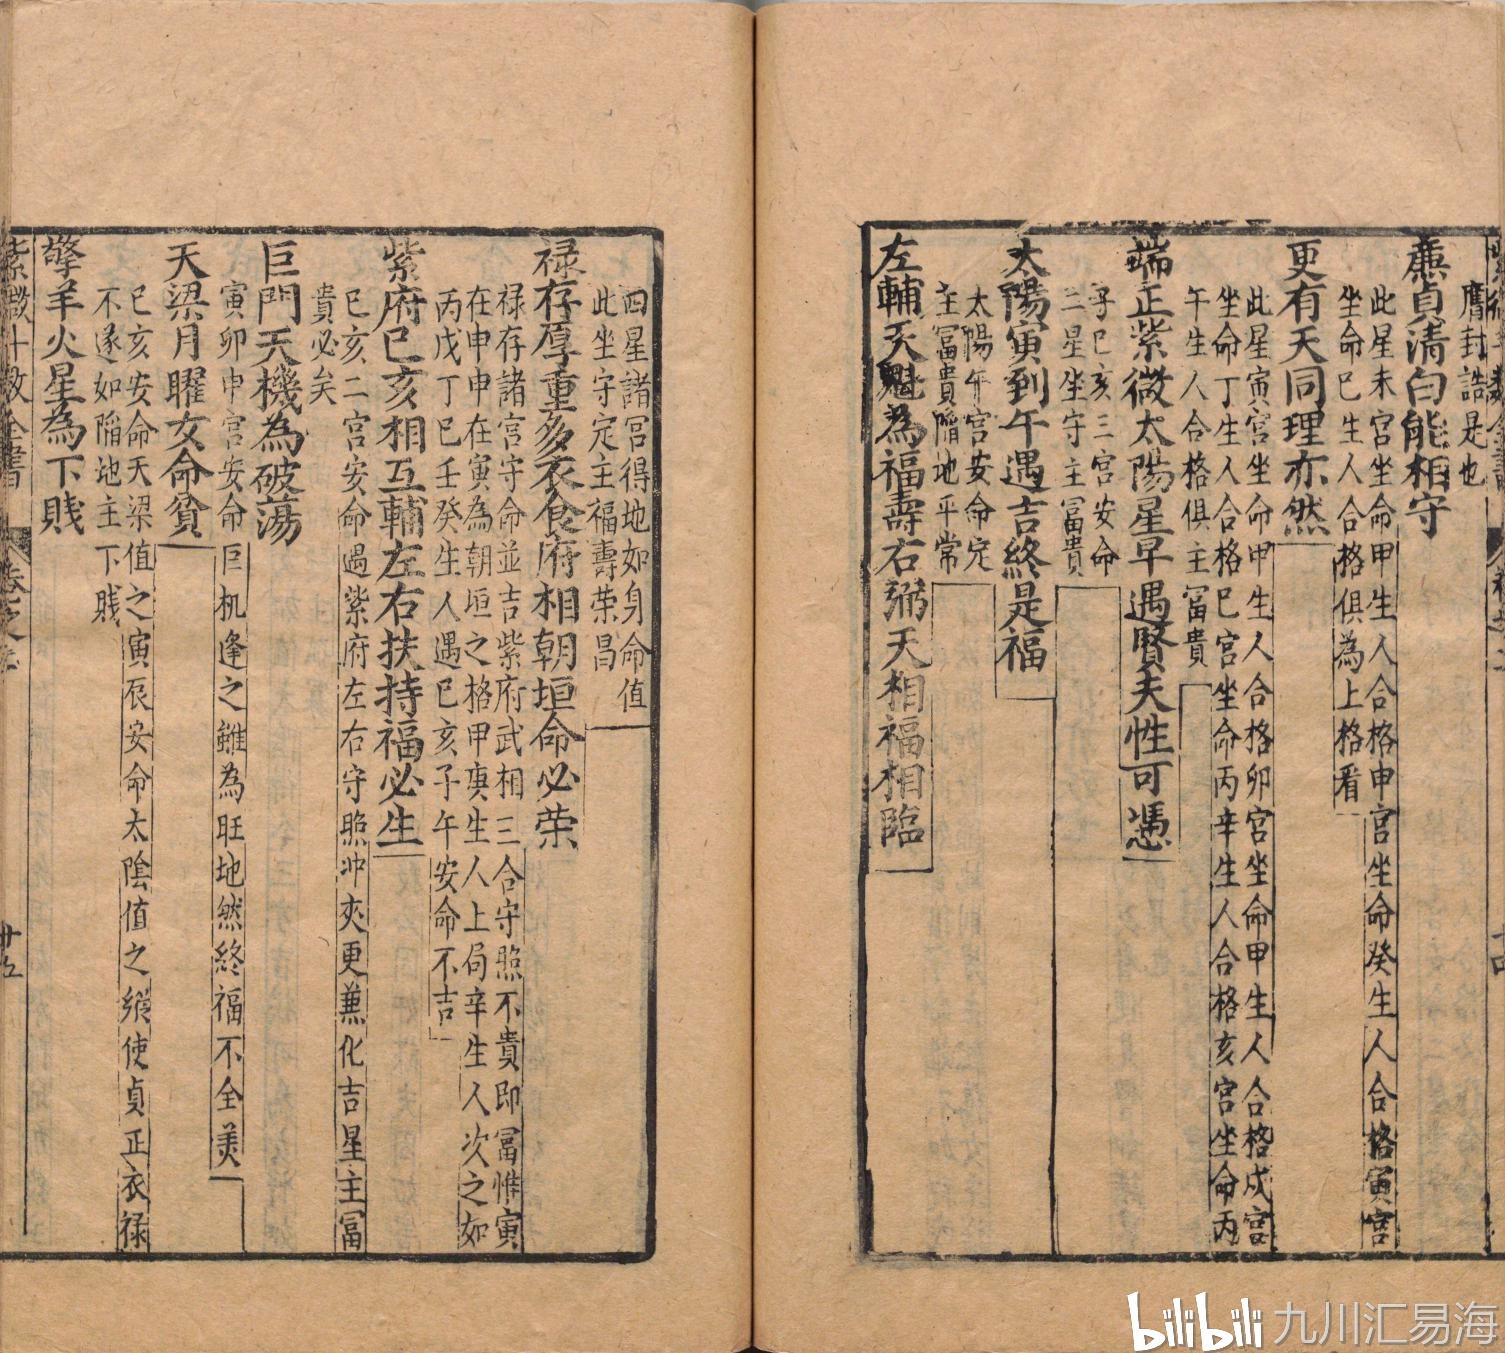 膺封誥是也
廉貞清白能相守
此星未宮坐命甲生人合格申宮坐命癸生人合格寅宮
坐命己生人合格俱為上格看
更有天同理亦然
此星寅宮坐命甲生人合格卯宮坐命甲生人合格戍宮
坐命丁生人合格巳宮坐命丙辛生人合格亥宮坐命丙
午生人合格俱主冨貴
端正紫微太陽星早遇賢夫性可憑
子巳亥三宮安命
二星坐守主冨貴
太陽寅到午遇吉終是福
太陽午宮安命定
主冨貴陥地平常
左輔天魁為福壽右弼天相福相臨
四星諸宮得地如身命值
此坐守定主福壽荣昌
禄存厚重多衣食府相朝垣命必荣
禄存諸宮守命並吉紫府武相三合守照不貴即冨惟寅
在申申在寅為朝垣之格甲庚生人上局辛生人次之如
丙戊丁巳壬癸生人遇巳亥子午安命不吉
紫府巳亥相互輔左右扶持福必生
巳亥二宮安命遇紫府左右守照冲夾更兼化吉星主冨
貴必矣
巨門天機為破蕩
寅卯申宮安命巨机逢之雖為旺地然終福不全美
天梁月曜女命貧
巳亥安命天梁值之寅辰安命太陰值之縱使貞正衣禄
不遂如陥地主下賎
擎羊火星為下賎
紫微斗數全書
卷之
廿五